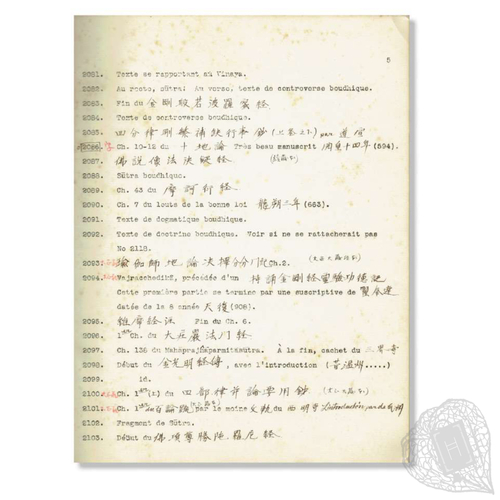 5
2081. Texte se rapportant au Vinaya.
2082. Au recto, sūtra: Au verso, texte de controverse boudhique.
2083. Fin du 金剛般若波羅蜜経
2084. Texte de controverse boudhique.
2085. 四分律刪繁補缺行事鈔 par 道宣
2086. Ch. 10-12 du 十地論 Très beau manuscrit 開皇十四年 (594).
2087. 佛説像法決疑経
2088. Sūtra boudhique.
2089. Ch. 63 du 摩訶衍経
2090. Ch. 7 du lotus de la bonne loi 龍朔三年 (663).
2091. Texte de dogmatique boudhique.
2092. Texte de doctrine boudhique. Voir si ne se rattacherait pas
No 2118.
2093. 瑜伽師地論 Ch.2.
2094. Vajracchedikā, précédée d'un 持誦金剛経霊験功徳記
Cette première partie se termine par une suscriptive de
datée de la 8 année 天復 (908).
2095. 維摩経 Fin du Ch. 6.
2096. 1er Ch. du 大荘厳法門経
2097. Ch. 136 du Mahāprajñāparmitāsutra. À la fin, cachet du 三界寺
2098. Début du 金光明経 avec l'introduction
2099. id.
2100. Ch. 1er du 四部律并論要用鈔
2101. Ch. 1er du par le moine du 西明寺
2102. Fragment de Sūtra.
2103. Début du 佛頂尊勝陀羅尼経